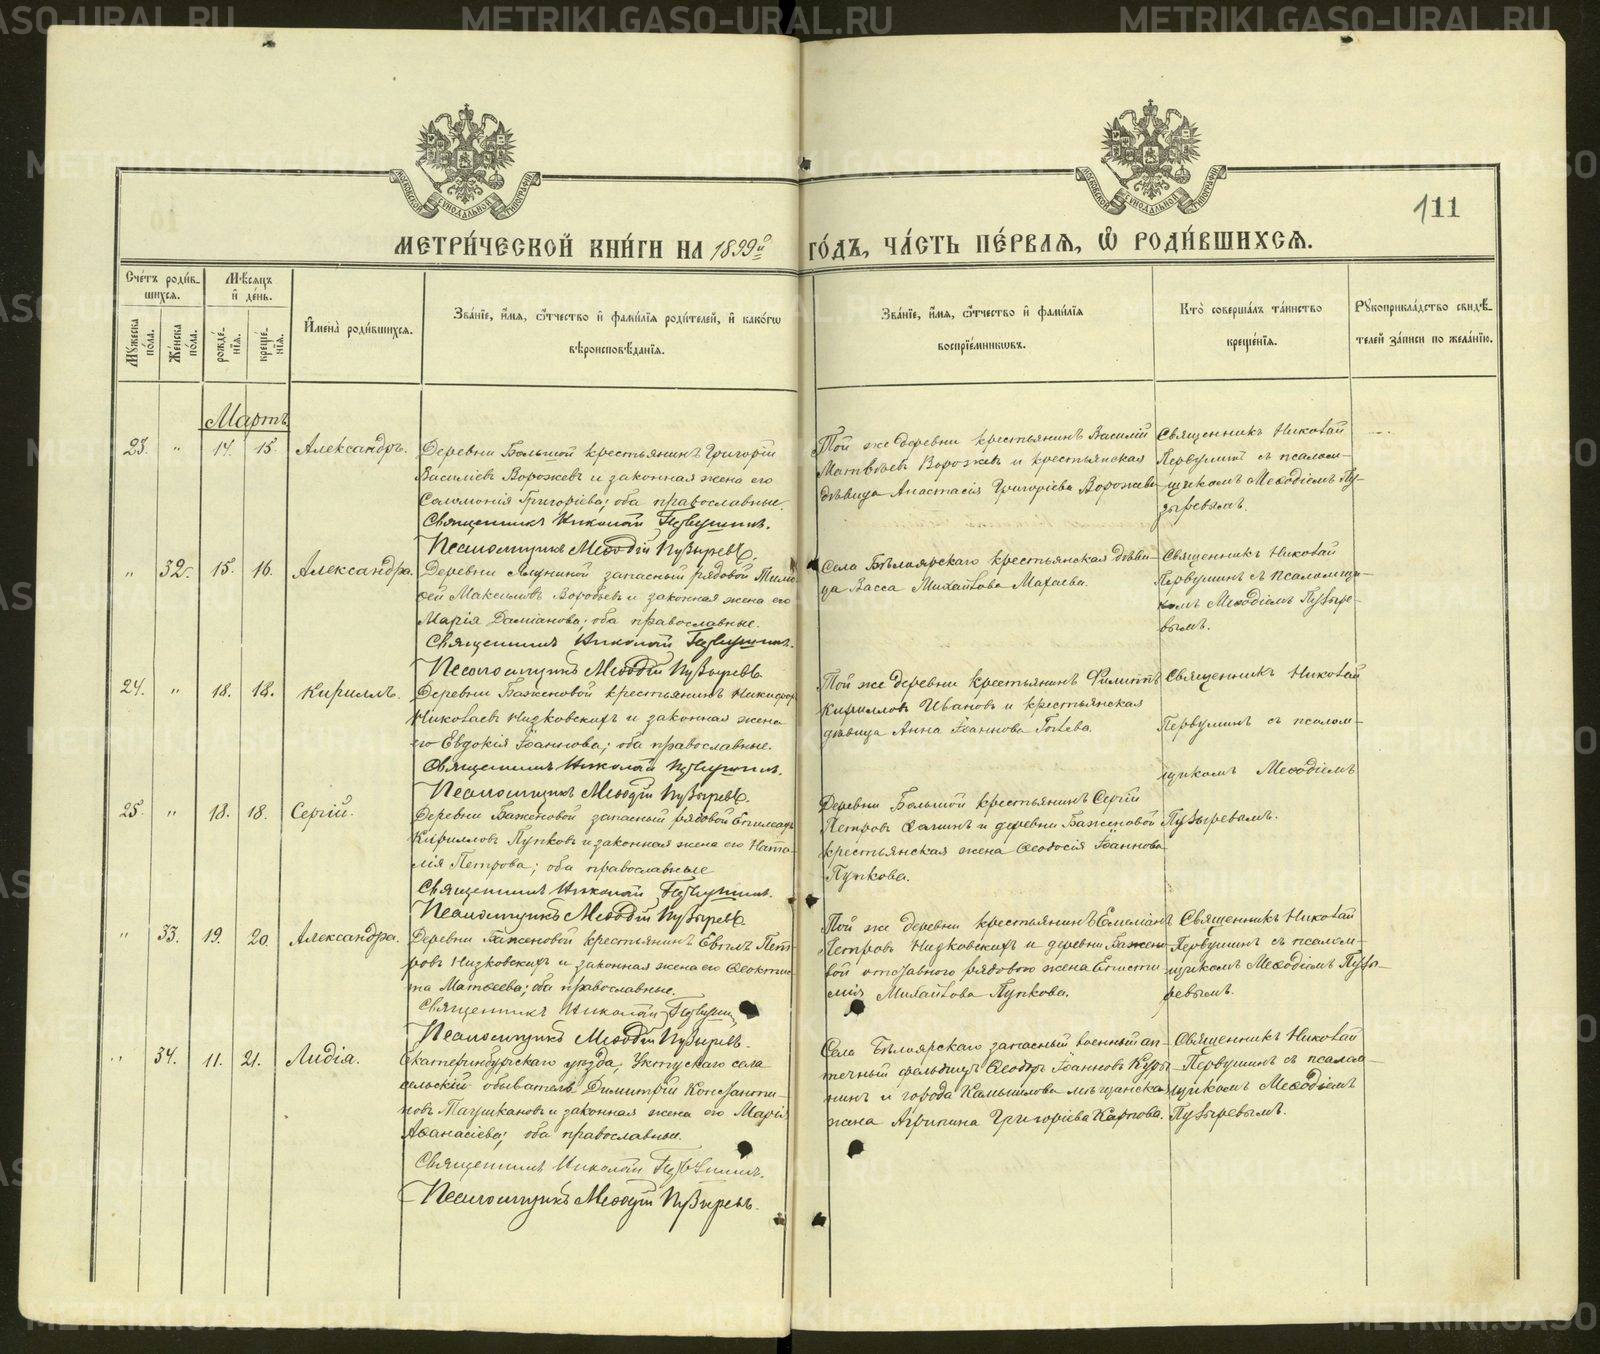 METRIKI.GASO-URAL.RU
МЕТРИ́ЧЕСКОЙ КНИ́ГИ НА 1899й ГО́ДЪ, ЧА́СТЬ ПЕ́РВАЯ, Ѡ РОДИ́ВШИХСЯ.
111
МОСКОВСКОЙ СѴНОДАЛЬНОЙ ТИПОГРАФІИ
Сче́тъ роди́вшихся.
Му́жеска по́ла.
Же́нска по́ла.
Мѣ́сяцъ и҆ де́нь.
рожде́нїя.
креще́нїя.
И҆мена̀ роди́вшихся.
Зва́нїе, и҆́мя, ѻ҆́тчество и҆ фами́лїя роди́телей, и҆ како́гѡ
вѣроисповѣ́данїя.
Зва́нїе, и҆́мя, ѻ҆́тчество и҆ фами́лїя
воспрїе́мникѡвъ.
Кто̀ соверша́лъ та́инство
креще́нїя.
Рꙋкоприкла́дство свидѣ́-
телей за́писи по жела́нїю.
Мартъ
23. " 14. 15. Александръ.
Деревни Большой крестьянинъ Григорій
Василіевъ Ворожевъ и законная жена его
Соломонія Григоріева; оба православные.
Священникъ Николай Первушинъ.
Псаломщикъ Меѳодій Пузыревъ.
Той же деревни крестьянинъ Василій
Матвѣевъ Ворожевъ и крестьянская
дѣвица Анастасія Григоріева Ворожева
Священникъ Николай
Первушинъ съ псалом-
щикомъ Меѳодіемъ Пу-
зыревымъ.
" 32. 15. 16. Александра.
Деревни запасный рядовой Тимо-
ѳей Максимовъ Воробьевъ и законная жена его
Марія Даміанова; оба православные.
Священникъ Николай Первушинъ.
Псаломщикъ Меѳодій Пузыревъ
Села Бѣлоярскаго крестьянская дѣви-
ца Васса Михайлова Махаева.
Священникъ Николай
Первушинъ съ псаломщи-
комъ Меѳодіемъ Пузыре-
вымъ.
24. " 18. 18. Кириллъ.
Деревни Баженовой крестьянинъ Никифоръ
Николаевъ Низковскихъ и законная жена
его Евдокія Іоаннова; оба православные.
Священникъ Николай Первушинъ.
Псаломщикъ Меѳодій Пузыревъ.
Той же деревни крестьянинъ Филиппъ
Кирилловъ Ивановъ и крестьянская
дѣвица Анна Іоаннова
Священникъ Николай
Первушинъ съ псалом-
щикомъ Меѳодіемъ
Пузыревымъ.
25. " 18. 18. Сергій.
Деревни Баженовой запасный рядовой
Кирилловъ Пупковъ и законная жена его Ната-
лія Петрова; оба православные
Священникъ Николай Первушинъ.
Псаломщикъ Меѳодій Пузыревъ.
Деревни Большой крестьянинъ Сергій
Петровъ и деревни Баженовой
крестьянская жена Ѳеодосія Іоаннова
Пупкова.
" 33. 19. 20. Александра.
Деревни Баженовой крестьянинъ Пет-
ровъ Низковскихъ и законная жена его Ѳеокти-
ста Матѳеева; оба православные.
Священникъ Николай Первушинъ
Псаломщикъ Меѳодій Пузыревъ.
Той же деревни крестьянинъ Емиліанъ
Петровъ Низковскихъ и деревни Бажено-
вой отставного рядового жена Еписти-
мія Михайлова Пупкова.
Священникъ Николай
Первушинъ съ псалом-
щикомъ Меѳодіемъ Пузы-
ревымъ.
" 34. 11. 21. Лидія.
Екатеринбургскаго уѣзда, Уктусскаго села
сельскій обыватель Димитрій Константи-
новъ и законная жена его Марія
Аѳанасіева; оба православные.
Священникъ Николай Первушинъ.
Псаломщикъ Меѳодій Пузыревъ.
Села Бѣлоярскаго запасный военный ап-
течный фельдшеръ Ѳеодоръ Іоанновъ
и города Камышлова мѣщанская
жена Агрипина Григоріева Карпова.
Священникъ Николай
Первушинъ съ псалом-
щикомъ Меѳодіемъ
Пузыревымъ.